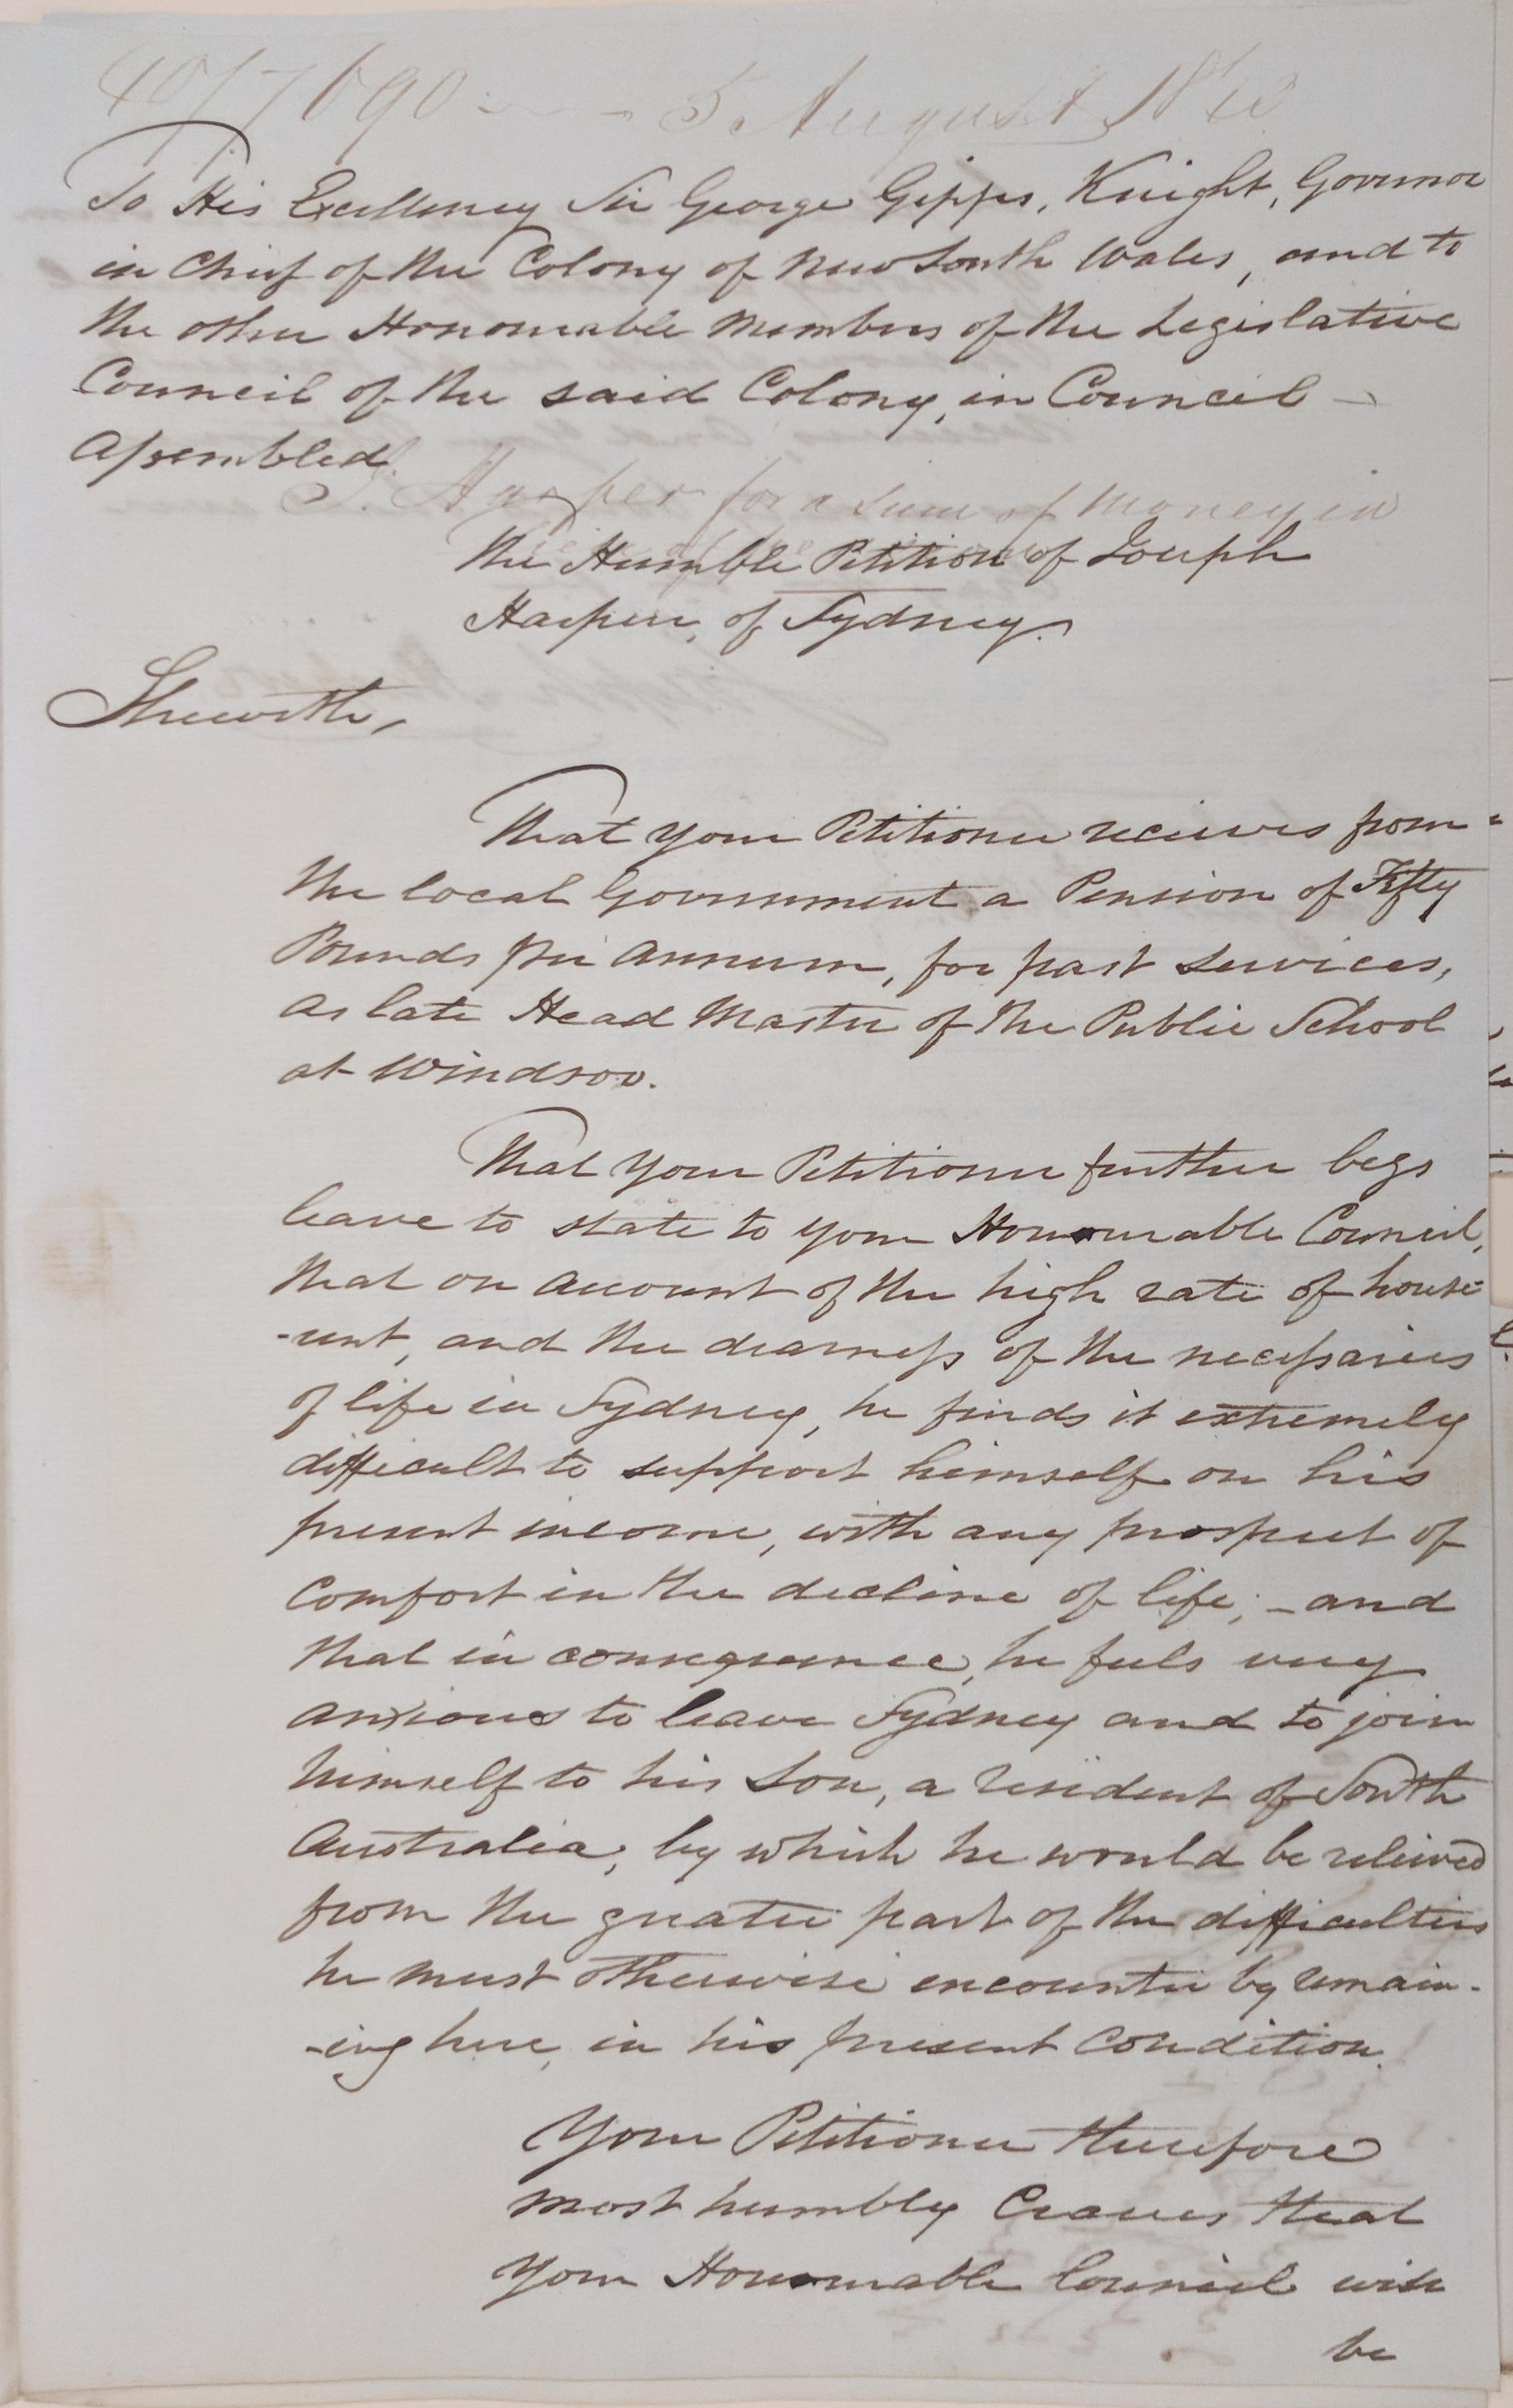 40/7690 - 5. August 1840
To His Excellency Sir George Gipps, Knight, Governor
in Chief of the Colony of New South Wales, and to
the other Honourable Members of the Legislative
Council of the said Colony, in Council -
Assembled.
J. Harper for a sum of Money in
The Humble Petition of Joseph
Harper, of Sydney.
Sheweth,
That your Petitioner receives from
the local Government a Pension of Fifty
Pounds per annum, for past services,
as late Head Master of the Public School
at Windsor.
That your Petitioner further begs
leave to state to your Honourable Council,
that on account of the high rate of house-
-rent, and the dearness of the necessaries
of life in Sydney, he finds it extremely
difficult to support himself on his
present income, with any prospect of
comfort in the decline of life; - and
that in consequence, he feels very
anxious to leave Sydney and to join
himself to his Son, a resident of South
Australia, by which he would be releived
from the greater part of the difficulties
he must otherwise encounter by remain-
-ing here, in his present condition.
Your Petitioner therefore
most humbly Craves that
your Honourable Council will
be